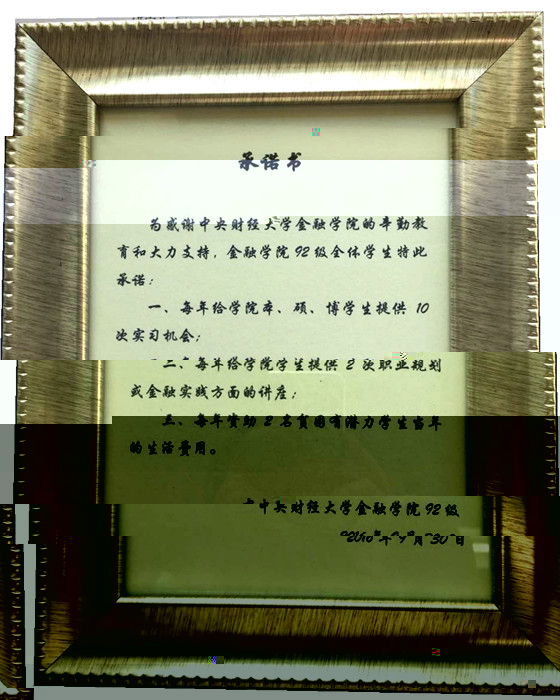 承诺书
为感谢中央财经大学金融学院的辛勤教
育和大力支持，金融学院92级全体学生特此
承诺：
一、每年给学院本、硕、博学生提供 10
次实习机会；
二、每年给学院学生提供 2 次职业规划
或金融实践方面的讲座；
三、每年资助 2 名贫困有潜力学生当年
的生活费用。
中央财经大学金融学院 92 级